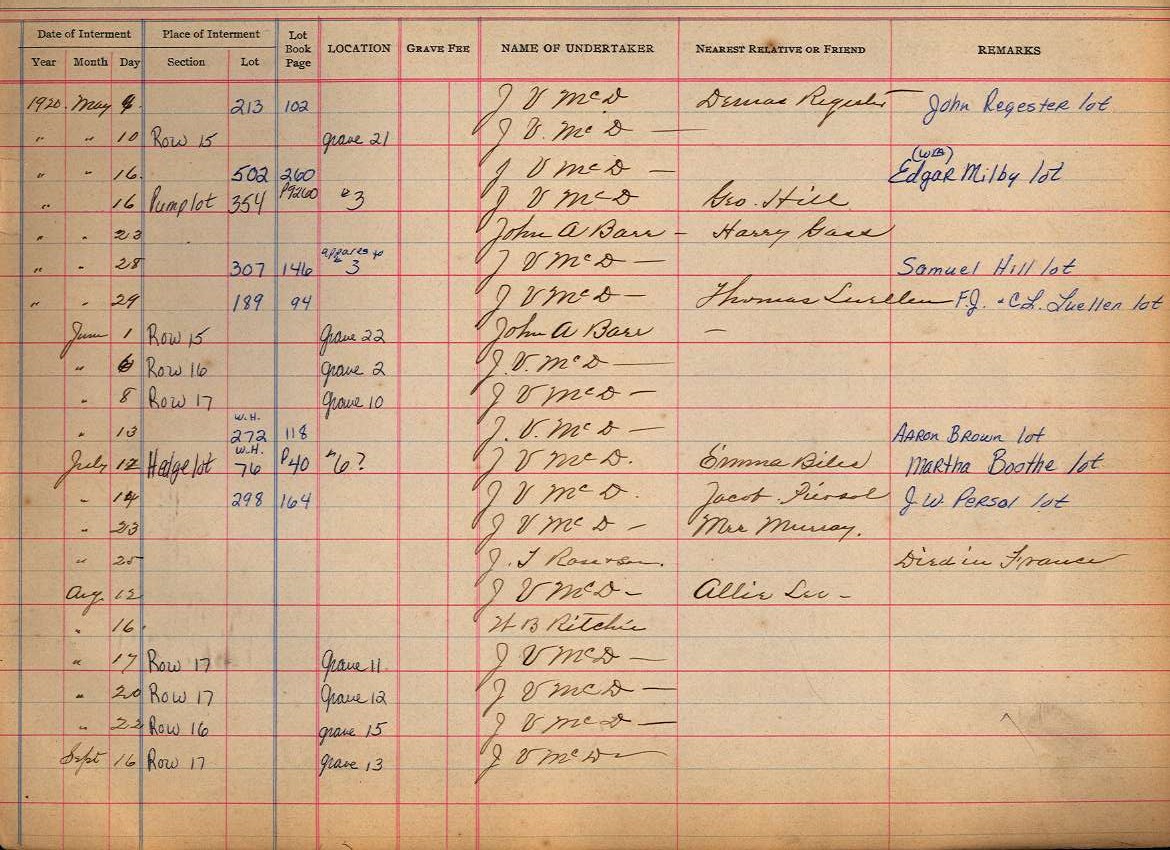 Date of Interment Place of Interment Lot Book Page LOCATION GRAVE FEE NAME OF UNDERTAKER NEAREST RELATIVE OR FRIEND REMARKS
Year Month Day Section Lot
1920. May 213 102 J V McD Demas Register John Regester lot
" " 10 Row 15 grave 21 J. V. McD —
" " 16. 502 260 J V McD — (WB) Edgar Milby lot
" 16 Pump lot 354 P9260 "3 J V McD Geo. Hill
" " 23 John A Barr - Harry Gass
" " 28 307 146 appears to " 3 J V McD — Samuel Hill lot
" " 29 189 94 J V McD — Thomas Luellen F.J. & C.L. Luellen lot
June 1 Row 15 Grave 22 John A Barr —
" 6 Row 16 grave 2 J. V. McD —
" 8 Row 17 grave 10 J V McD —
" 13 W.H. 272 118 J. V. McD — AARON BROWN lot
July 12 Hedge lot W.H. 76 P40 "6? J V McD. Emma Biles Martha Boothe lot
" 14 298 164 J V McD. Jacob Piersol J. W. PERSOL lot
" 23 J V McD - Mrs Murray.
" 25 J. T. Died in France
Aug. 12 J V McD - Allie Lee -
" 16. W B Ritchie
" 17 Row 17 grave 11 J V McD —
" 20 Row 17 grave 12 J V McD —
" 22 Row 16 grave 15 J V McD —
Sept 16 Row 17 grave 13 J V McD